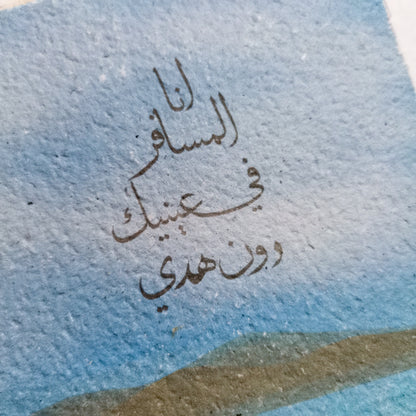 انا
المسافر
في عينيك
دون هدي